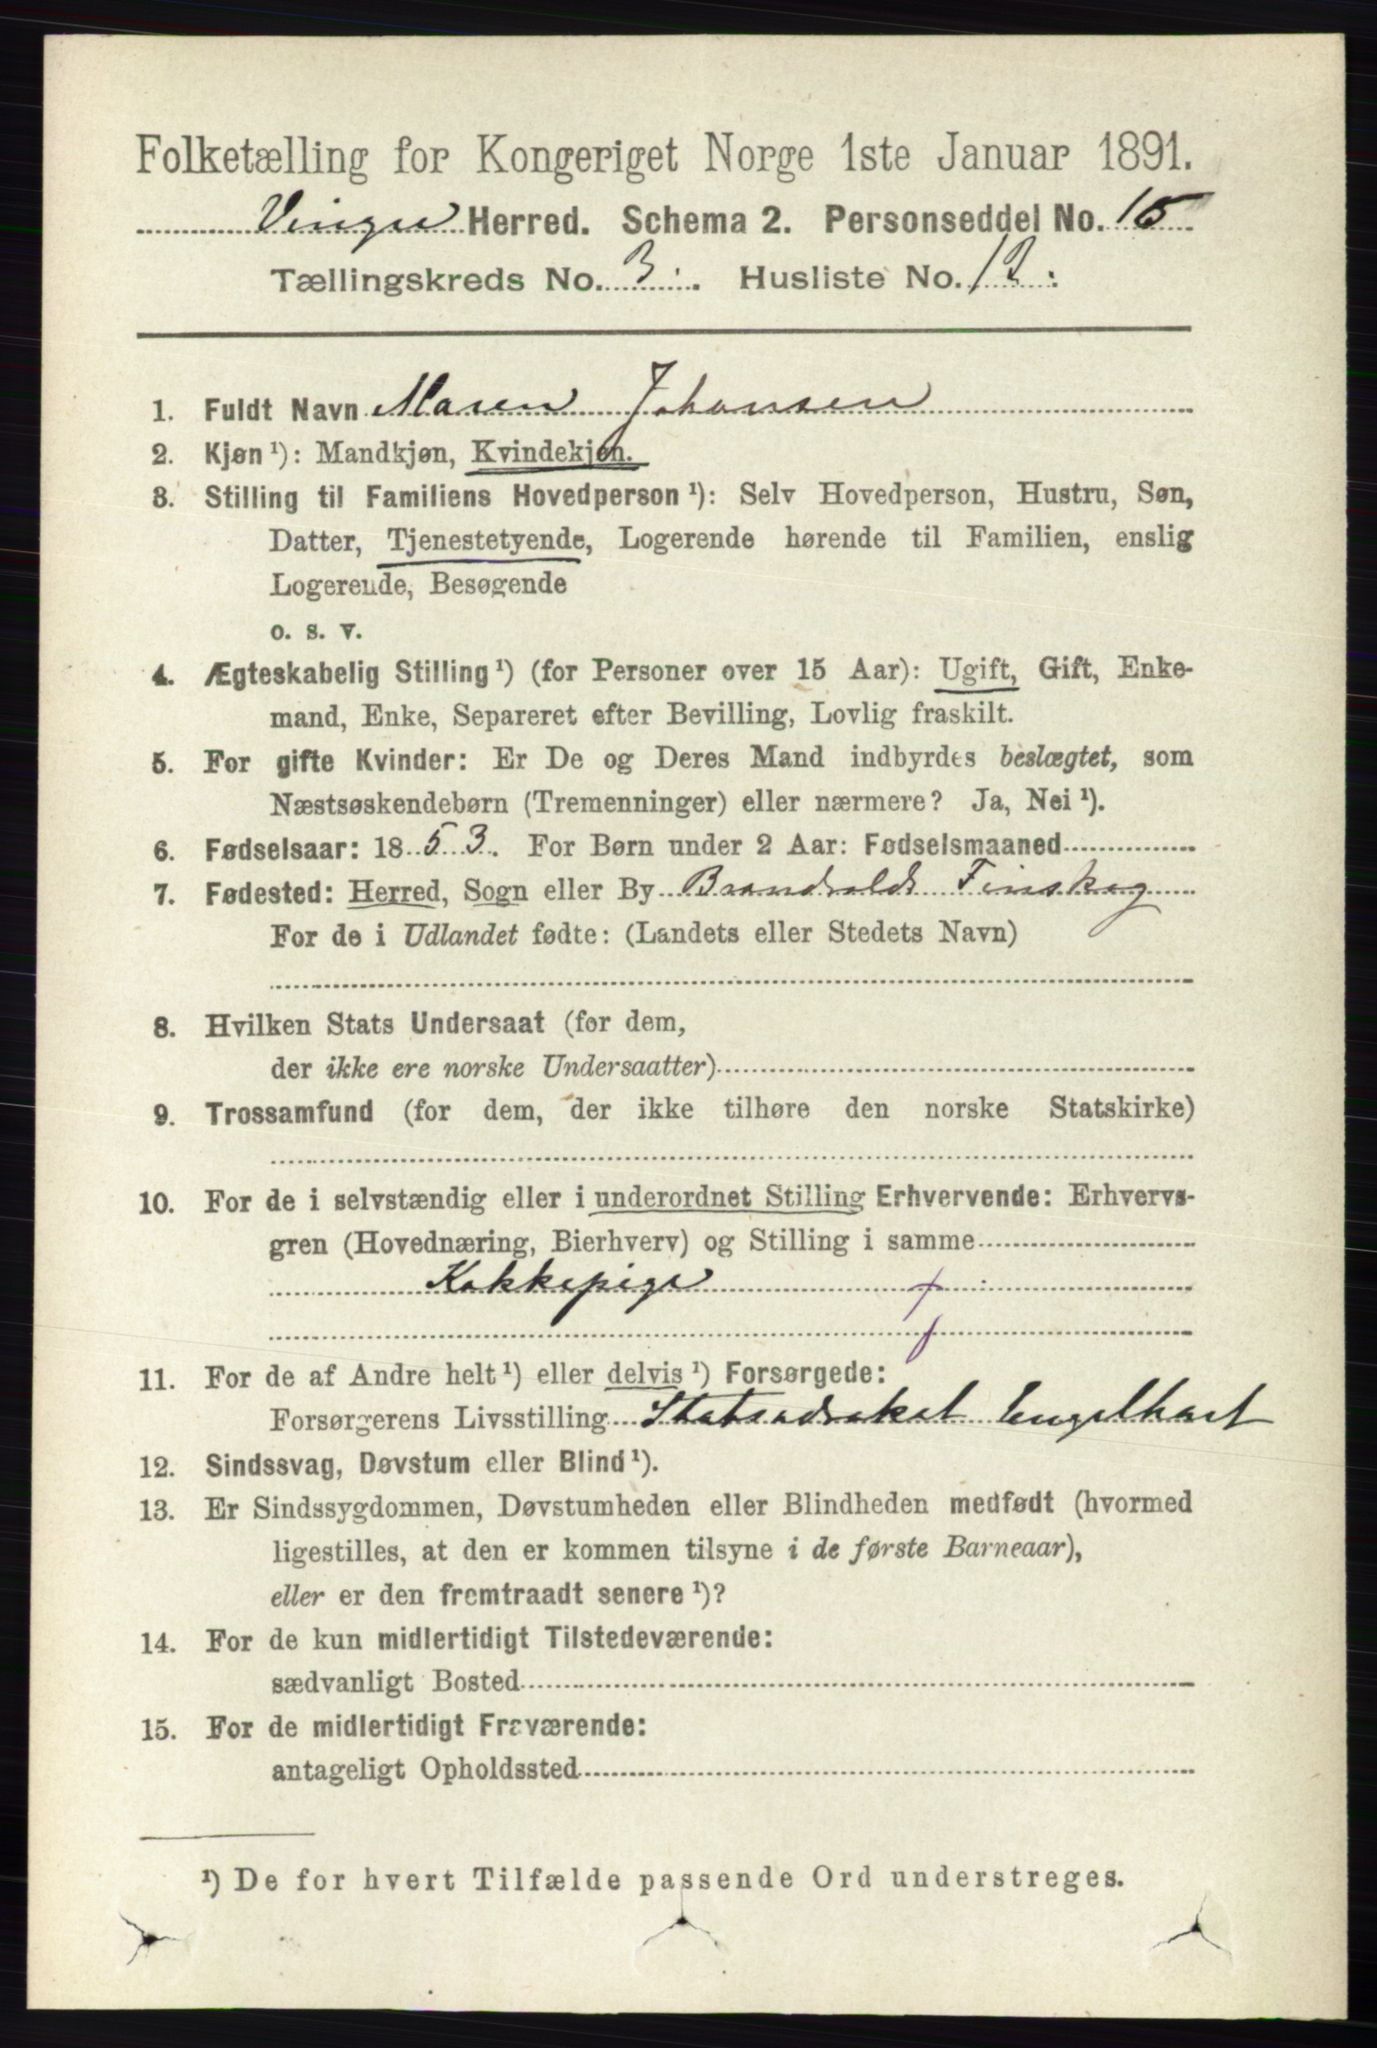 Folketælling for Kongeriget Norge 1ste Januar 1891.
Vinger Herred. Schema 2. Personseddel No. 15
Tællingskreds No. 3. Husliste No. 12.
1. Fuldt Navn Maren Johansen
2. Kjøn ¹): Mandkjøn, Kvindekjøn.
3. Stilling til Familiens Hovedperson ¹): Selv Hovedperson, Hustru, Søn,
Datter, Tjenestetyende, Logerende hørende til Familien, enslig
Logerende, Besøgende
o. s. v.
4. Ægteskabelig Stilling ¹) (for Personer over 15 Aar): Ugift, Gift, Enke-
mand, Enke, Separeret efter Bevilling, Lovlig fraskilt.
5. For gifte Kvinder: Er De og Deres Mand indbyrdes beslægtet, som
Næstsøskendebørn (Tremenninger) eller nærmere? Ja, Nei ¹).
6. Fødselsaar: 1853. For Børn under 2 Aar: Fødselsmaaned
7. Fødested: Herred, Sogn eller By Brandvalds Finskog
For de i Udlandet fødte: (Landets eller Stedets Navn)
8. Hvilken Stats Undersaat (for dem,
der ikke ere norske Undersaatter)
9. Trossamfund (for dem, der ikke tilhøre den norske Statskirke)
10. For de i selvstændig eller i underordnet Stilling Erhvervende: Erhvervs-
gren (Hovednæring, Bierhverv) og Stilling i samme
Kokkepige
11. For de af Andre helt ¹) eller delvis ¹) Forsørgede:
Forsørgerens Livsstilling Statsadvokat Engelhart
12. Sindssvag, Døvstum eller Blind ¹).
13. Er Sindssygdommen, Døvstumheden eller Blindheden medfødt (hvormed
ligestilles, at den er kommen tilsyne i de første Barneaar),
eller er den fremtraadt senere ¹)?
14. For de kun midlertidigt Tilstedeværende:
sædvanligt Bosted
15. For de midlertidigt Fraværende:
antageligt Opholdssted
¹) De for hvert Tilfælde passende Ord understreges.